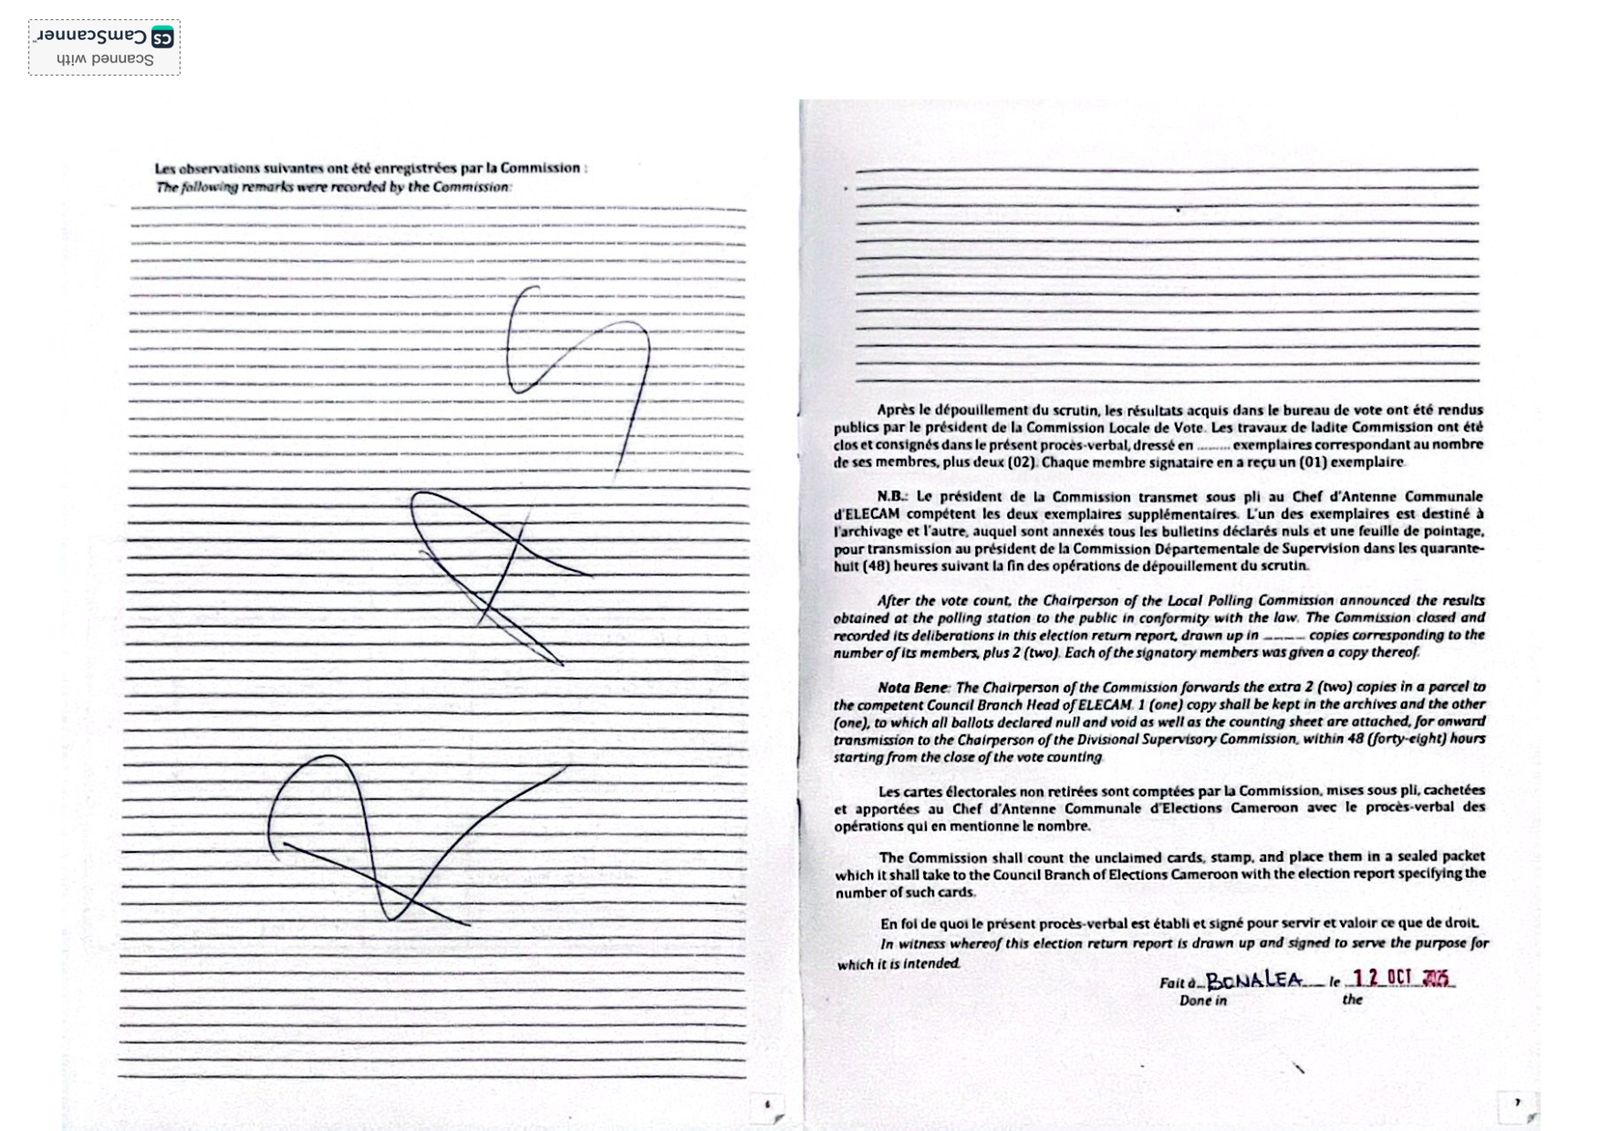 Scanned with
CS CamScanner
Les observations suivantes ont été enregistrées par la Commission :
The following remarks were recorded by the Commission:
6
Après le dépouillement du scrutin, les résultats acquis dans le bureau de vote ont été rendus
publics par le président de la Commission Locale de Vote. Les travaux de ladite Commission ont été
clos et consignés dans le présent procès-verbal, dressé en ......... exemplaires correspondant au nombre
de ses membres, plus deux (02). Chaque membre signataire en a reçu un (01) exemplaire.
N.B.: Le président de la Commission transmet sous pli au Chef d'Antenne Communale
d'ELECAM compétent les deux exemplaires supplémentaires. L'un des exemplaires est destiné à
l'archivage et l'autre, auquel sont annexés tous les bulletins déclarés nuls et une feuille de pointage,
pour transmission au président de la Commission Départementale de Supervision dans les quarante-
huit (48) heures suivant la fin des opérations de dépouillement du scrutin.
After the vote count, the Chairperson of the Local Polling Commission announced the results
obtained at the polling station to the public in conformity with the law. The Commission closed and
recorded its deliberations in this election return report, drawn up in ......... copies corresponding to the
number of its members, plus 2 (two). Each of the signatory members was given a copy thereof.
Nota Bene: The Chairperson of the Commission forwards the extra 2 (two) copies in a parcel to
the competent Council Branch Head of ELECAM. 1 (one) copy shall be kept in the archives and the other
(one), to which all ballots declared null and void as well as the counting sheet are attached, for onward
transmission to the Chairperson of the Divisional Supervisory Commission, within 48 (forty-eight) hours
starting from the close of the vote counting.
Les cartes électorales non retirées sont comptées par la Commission, mises sous pli, cachetées
et apportées au Chef d'Antenne Communale d'Elections Cameroon avec le procès-verbal des
opérations qui en mentionne le nombre.
The Commission shall count the unclaimed cards, stamp, and place them in a sealed packet
which it shall take to the Council Branch of Elections Cameroon with the election report specifying the
number of such cards.
En foi de quoi le présent procès-verbal est établi et signé pour servir et valoir ce que de droit.
In witness whereof this election return report is drawn up and signed to serve the purpose for
which it is intended.
Fait à BONALEA le 12 OCT 2025
Done in the
7